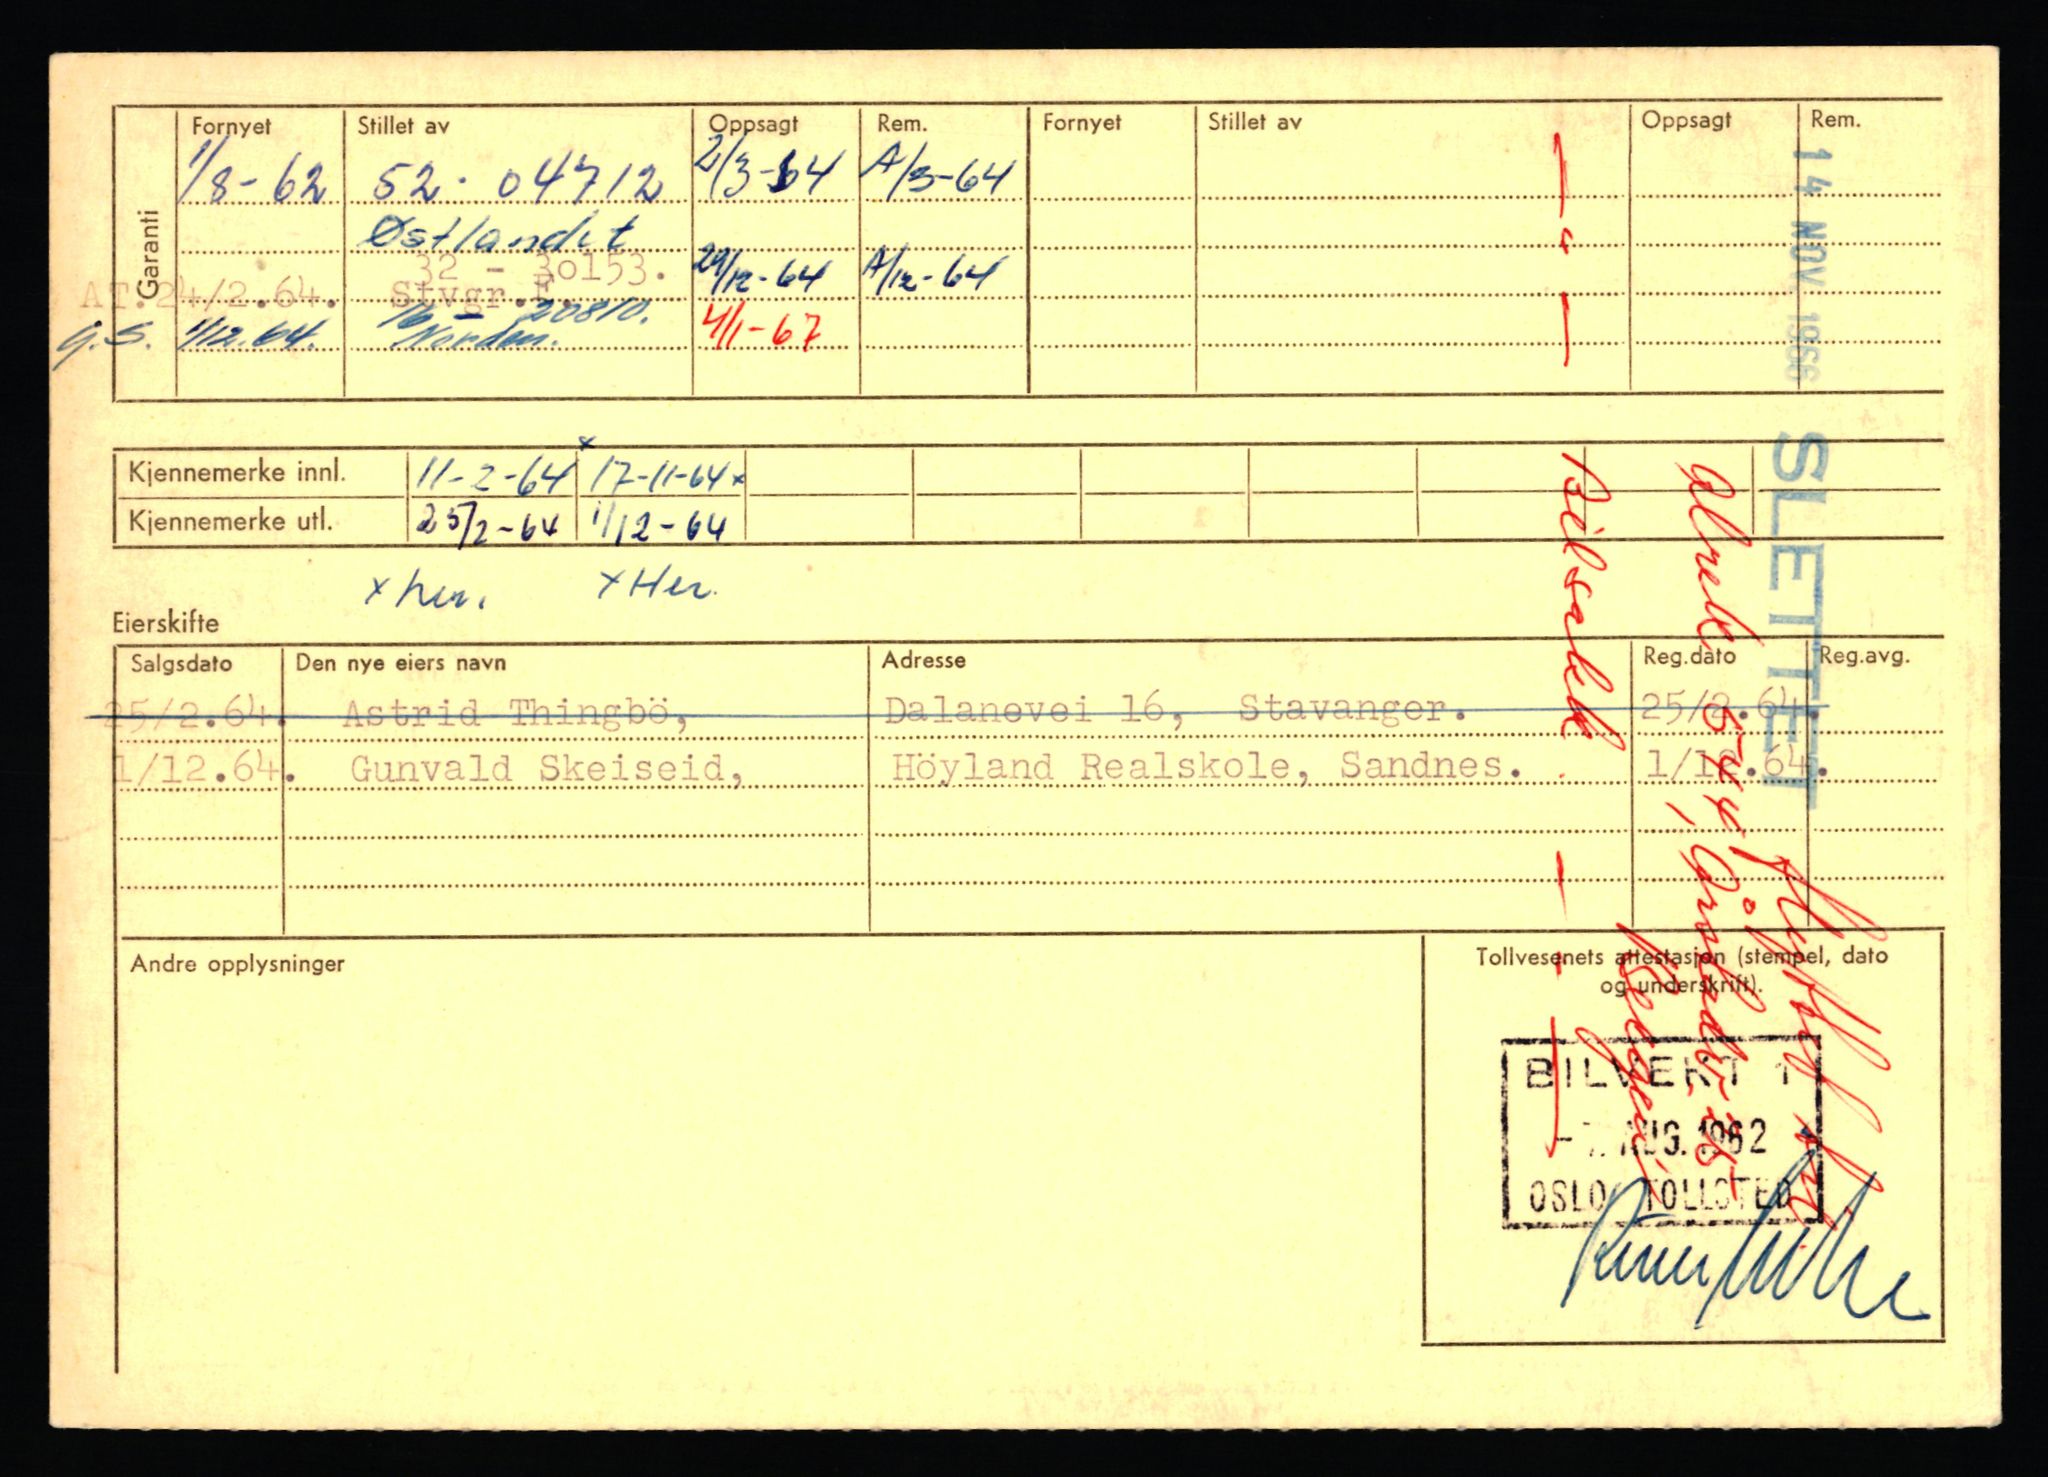 Garanti
Fornyet Stillet av Oppsagt Rem. Fornyet Stillet av Oppsagt Rem.
1/8-62 52. 04712 2/3-64 A/3-64
Østlandet
32 - 30153. 29/12-64 A/12-64
AT.24/2.64. Stvgr.F.
16 - 20810.
g.S. 1/12.64. Norden. 4/1-67
14 NOV. 1966
SLETTET
Kjennemerke innl. 11-2-64 x 17-11-64 x
Kjennemerke utl. 25/2-64 1/12-64
x her. x Her.
Eierskifte
Salgsdato Den nye eiers navn Adresse Reg.dato Reg.avg.
25/2.64. Astrid Thingbö, Dalanevei 16, Stavanger. 25/2.64.
1/12.64. Gunvald Skeiseid, Höyland Realskole, Sandnes. 1/12.64.
Andre opplysninger
Tollvesenets attestasjon (stempel, dato
og underskrift).
BILVERT 1
-7. AUG. 1962
OSLO TOLLSTED
flyttet til
Bilsakk.